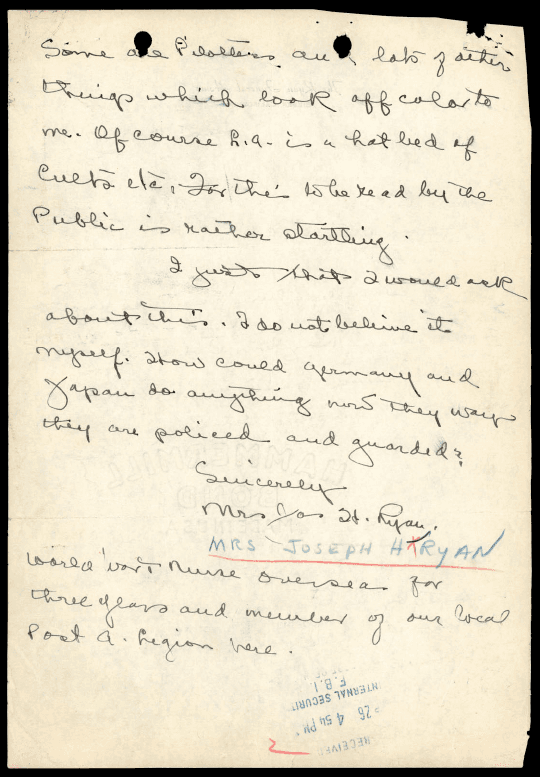 Some are P'lotters and lots of other
things which look off color to
me. Of course L.A. is a hot bed of
Cults etc; For this to be read by the
Public is rather startling.
I just that I would ask
about this. I do not believe it
myself. How could Germany and
Japan do anything now they way
they are policed and guarded?
Sincerely
Mrs Jos H. Ryan.
MRS JOSEPH H RYAN
World War I Nurse overseas for
three years and member of our local
Post A. Legion here.
INTERNAL SECURIT
F. B. I.
26 4 54 PM
RECEIVE